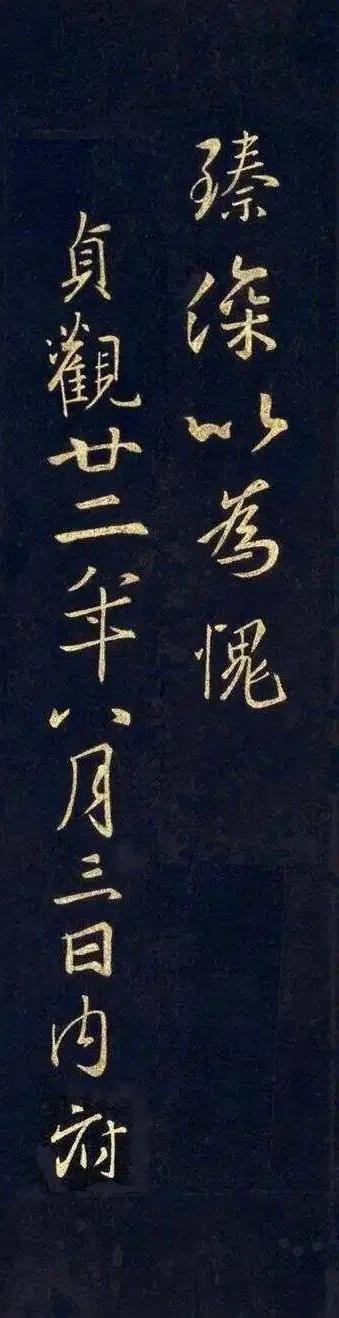 臻深以為愧
貞觀廿二年八月三日內府